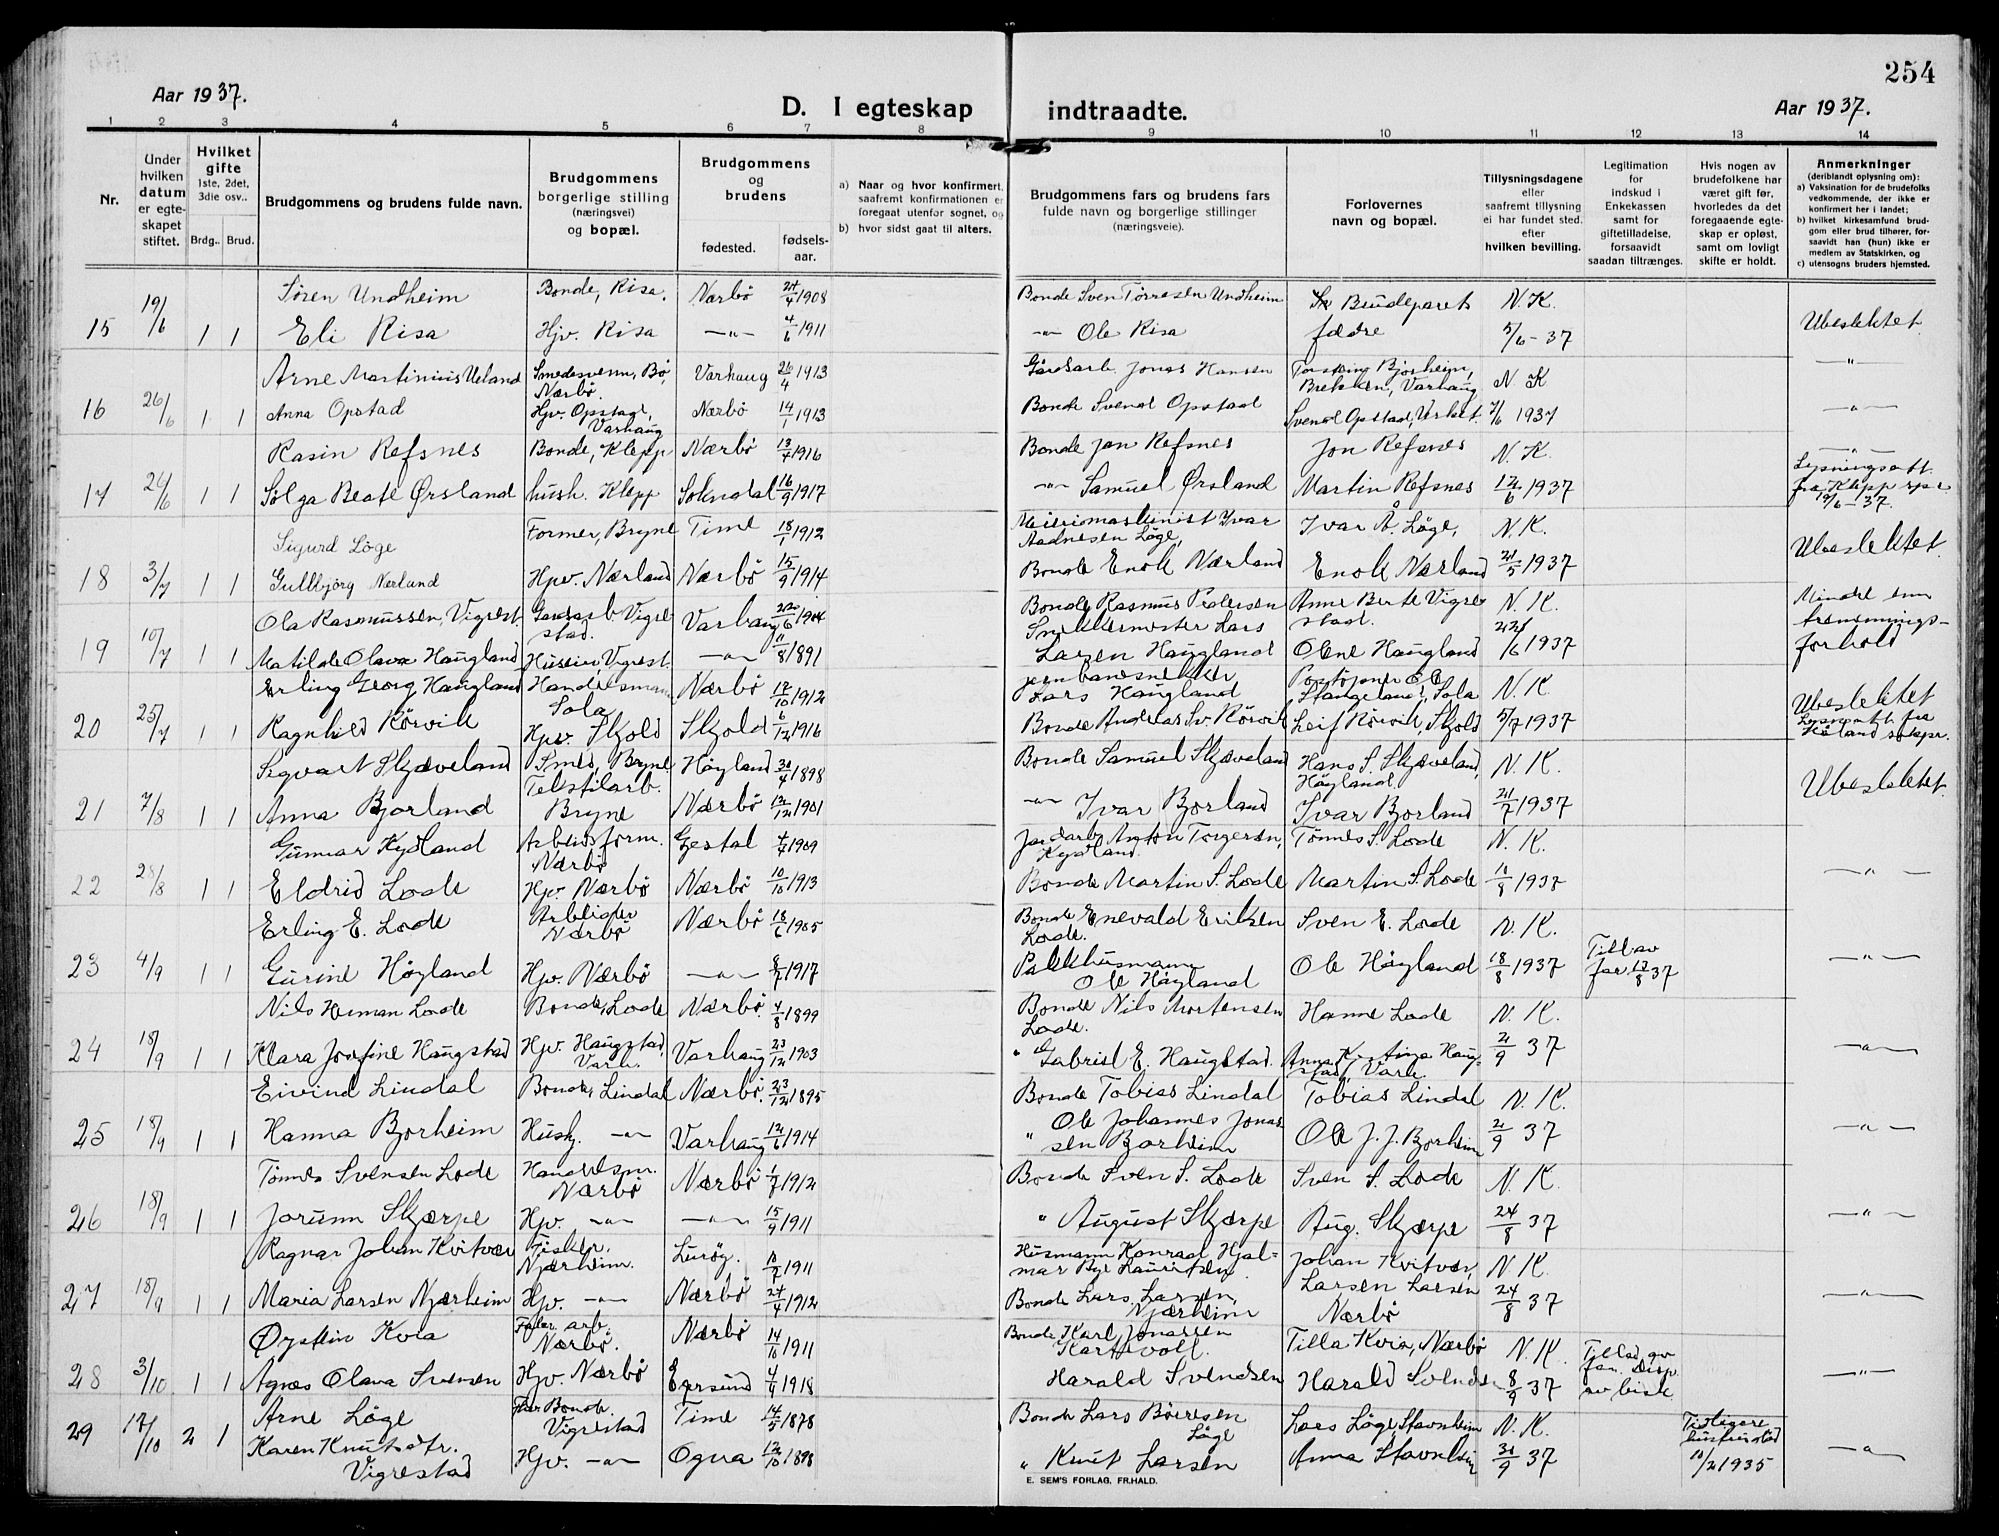 254
Aar 1937.
D. I egteskap indtraadte.
Aar 1937.
1 2 3 4 5 6 7 8 9 10 11 12 13 14
Nr.
Under hvilken datum er egte-skapet stiftet.
Hvilket gifte 1ste, 2det, 3die osv..
Brdg.. Brud.
Brudgommens og brudens fulde navn.
Brudgommens borgerlige stilling (næringsvei) og bopæl.
Brudgommens og brudens
fødested.
fødsels-aar.
a) Naar og hvor konfirmert, saafremt konfirmationen er foregaat utenfor sognet, og
b) hvor sidst gaat til alters.
Brudgommens fars og brudens fars fulde navn og borgerlige stillinger (næringsveie).
Forlovernes navn og bopæl.
Tillysningsdagene eller saafremt tillysning ei har fundet sted. efter hvilken bevilling.
Legitimation for indskud i Enkekassen samt for giftetilladelse, forsaavidt saadan tiltrænges.
Hvis nogen av brudefolkene har været gift før, hvorledes da det foregaaende egte-skap er opløst, samt om lovligt skifte er holdt.
Anmerkninger (deriblandt oplysning om):
a) Vaksination for de brudefolks vedkommende, der ikke er konfirmert her i landet;
b) hvilket kirkesamfund brud-gom eller brud tilhører, for-saavidt han (hun) ikke er medlem av Statskirken, og
c) utensogns bruders hjemsted.
Søren Undheim Bonde, Risa. Nærbø 1908 Bonde Sven Tørresen Undheim Brudeparets N. K.
15 19/6 1 1 Eli Risa Hjv. Risa -"- 4/6 1911 -"- Ole Risa fædre 5/6-37 Ubeslektet
Arne Martinius Ueland Smedesvenn, Bø, Nærbø. Varhaug 26/4 1913 Gårdsarb. Jonas Hansen Bjorheim, Brekken, Varhaug N. K -"-
16 26/6 1 1 Anna Opstad Hjv. Opstad, Varhaug Nærbø 14/1 1913 Bonde Svend Opstad Svend Opstad, 7/6 1937 -"-
Rasin Refsnes Bonde, Klepp Nærbø 13/4 1916 Bonde Jon Refsnes Jon Refsnes N. K. -"-
17 26/6 1 1 Sølga Beate Ørsland hush. Klepp Sokndal 16/9 1917 -"- Samuel Ørsland Martin Refsnes 12/6 1937 Lysningsatt. fra Klepp
Sigurd Løge Former, Bryne Time 18/1 1912 Meierimaskinist Ivar Aadnesen Løge, Ivar Å. Løge, N. K.
18 3/7 1 1 Gullbjørg Nærland Hpv. Nærland Nærbø 15/9 1914 Bonde Enok Nærland Enok Nærland 21/5 1937 Ubeslektet
Ola Rasmussen, Vigrest Gårdsarb. Vigrestad. Varhaug 1904 Bonde Rasmus Pedersen Anne Berte Vigrestad. N. K. Mindre enn
19 10/7 1 1 Matilde Olava Haugland Vigrest. -"- 11/8 1891 Snekkermester Lars Larsen Haugland Olene Haugland 22/6 1937 tremennings-forhold
Erling Georg Haugland Handelsmann Sola Nærbø 17/10 1912 Lars Haugland Stangeland, Sola N. K. Ubeslektet
20 25/7 1 1 Ragnhild Rørvik Hpv. Skjold Skjold 6/12 1916 Bonde Andreas Sv. Rørvik Leif Rørvik, Skjold 5/7 1937
Sigvart Skjæveland Smed, Bryne Høyland 30/4 1898 Bonde Samuel Skjæveland Hans S. Skjæveland, Høyland. N. K. Ubeslektet
21 7/8 1 1 Anna Bjorland Tekstilarb. Bryne Nærbø 12/12 1901 -"- Ivar Bjorland Ivar Bjorland 21/7 1937
Gunnar Kydland Arbeidsform. Nærbø Gjestal 4/4 1909 Anton Torgersen, Kydland. Tønnes S. Lode N. K.
22 28/8 1 1 Eldrid Lode Hjv. Nærbø Nærbø 10/10 1913 Bonde Martin S. Lode Martin S. Lode 11/8 1937 -"-
Erling E. Lode Arbeider Nærbø Nærbø 18/6 1905 Bonde Enevald Eriksen Lode. Sven E. Lode N. K.
23 4/9 1 1 Gurine Høyland Hjv. Nærbø -"- 8/7 1917 Pakkhusmann Ole Høyland Ole Høyland 18/8 1937 Till av far 17/8 37 -"-
Nils Herman Lode Bonde, Lode Nærbø. 4/8 1899 Bonde Nils Mortensen Lode. Hanne Lode N. K.
24 18/9 1 1 Klara Josefine Haugstad Hjv. Haugstad, Varh. Varhaug 23/12 1903 " Gabriel E. Haugstad. Anna Haugstad, Varh. 2/9 37 -"-
Eivind Lindal Bonde, Lindal Nærbø. 23/12 1895 Bonde Tobias Lindal Tobias Lindal N. K.
25 18/9 1 1 Hanna Bjorheim Hush. -"- Varhaug 12/6 1914 " Ole Johannes Jonassen Bjorheim Ole J. J. Bjorheim 2/9 37 -"-
Tønnes Svensen Lode Handelsm. Nærbø Nærbø 1/7 1912 Bonde Sven S. Lode Sven S. Lode N. K.
26 18/9 1 1 Jorunn Skjærpe Hjv. -"- -"- 15/9 1911 " August Skjærpe Aug. Skjærpe 24/8 37 -"-
Ragnar Johan Kvitvær Fisker. Njærheim. Lurøy. 11/7 1911 Husmann Konrad Hjalmar Lauritsen Johan Kvitvær, N. K.
27 18/9 1 1 Maria Larsen Njærheim Hjv. -"- Nærbø 24/4 1912 Bonde Lars Larsen, Njærheim Larsen Larsen Nærbø 24/8 37 -"-
Øystein Kvia arb. Nærbø. Nærbø 14/10 1911 Bonde Karl Jonassen Kartavoll. Tilla Kvia, Nærbø N. K. Tillad. av
28 3/10 1 1 Agnes Olava Svensen Hjv. Nærbø Egersund 4/4 1918 Harald Svendsen Harald Svendsen 8/9 37 av bisk. -"-
Arne Løge Bonde Vigrestad Time 14/5 1878 Bonde Lars Børresen Løge Lars Løge, Stavnheim N. K. Tidligere
29 17/10 2 1 Karen Knutsdtr. Vigrestad Hjv. -"- Ogna 12/10 1898 " Knut Larsen Anna Stavnheim 30/9 37 hustru død 10/2 1935 -"-
E. SEM'S FORLAG, FR.HALD.